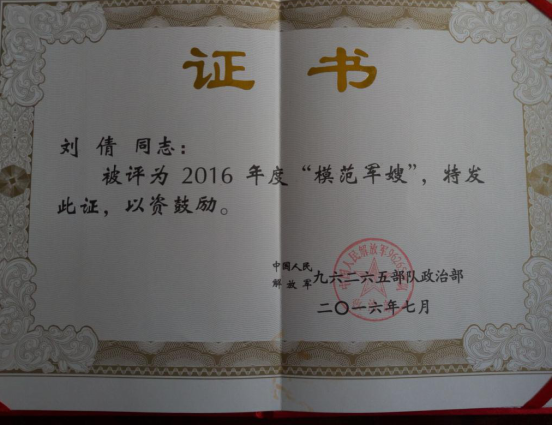 证书
刘 倩 同志：
被评为 2016 年度“模范军嫂”，特发
此证，以资鼓励。
中国人民
解放军 九六二六五部队政治部
二〇一六年七月